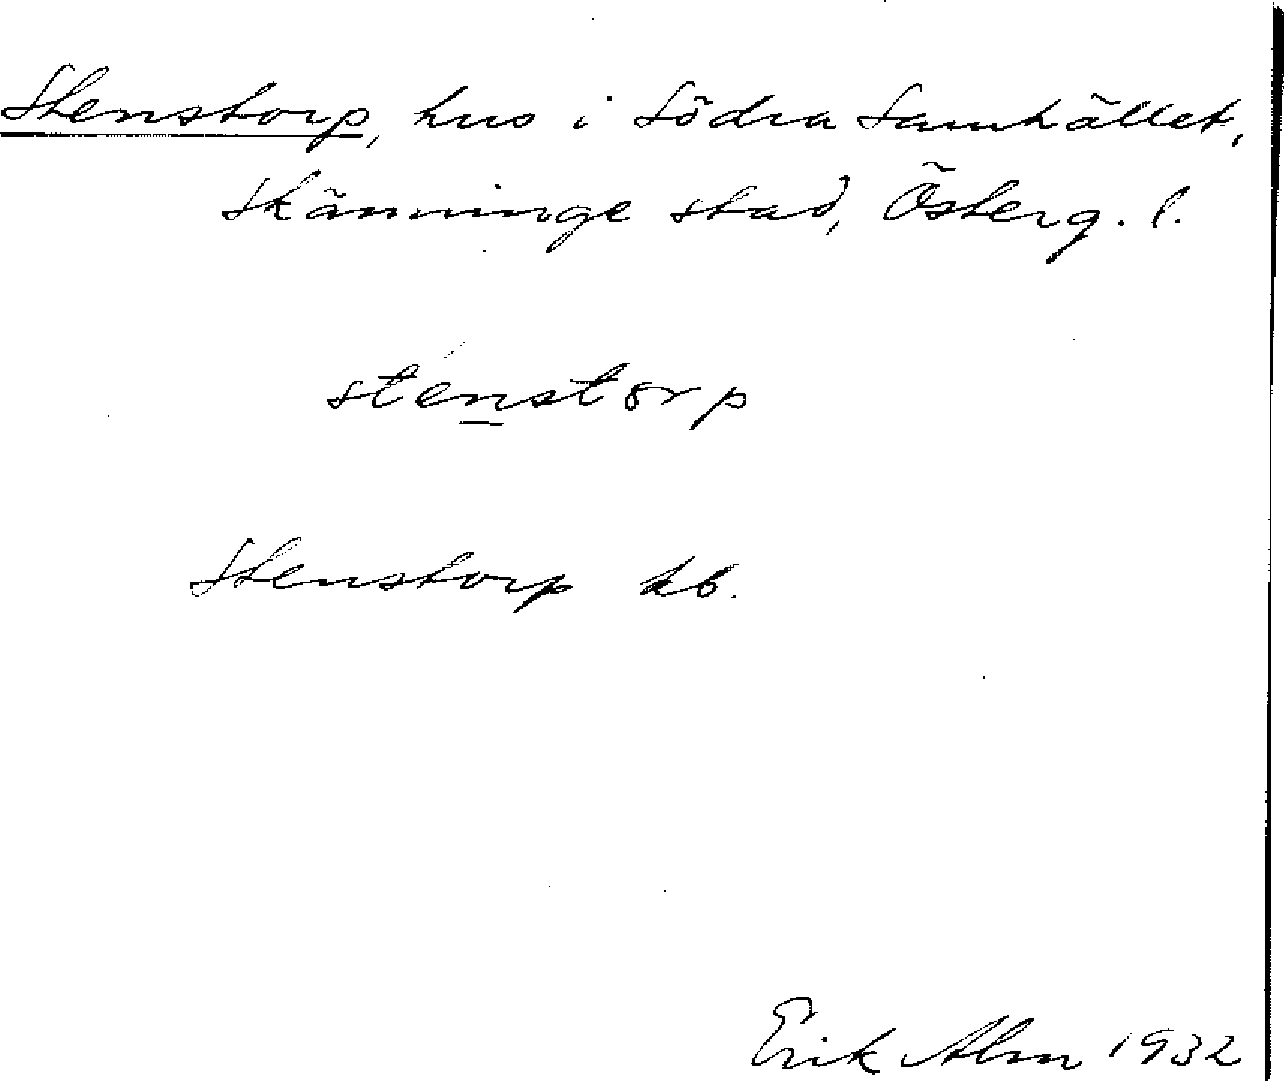 Stenstorp, hus i Södra Samhället,
Skänninge stad, Österg. l.
sténstorp
Stenstorp kb.
Erik Alm 1932